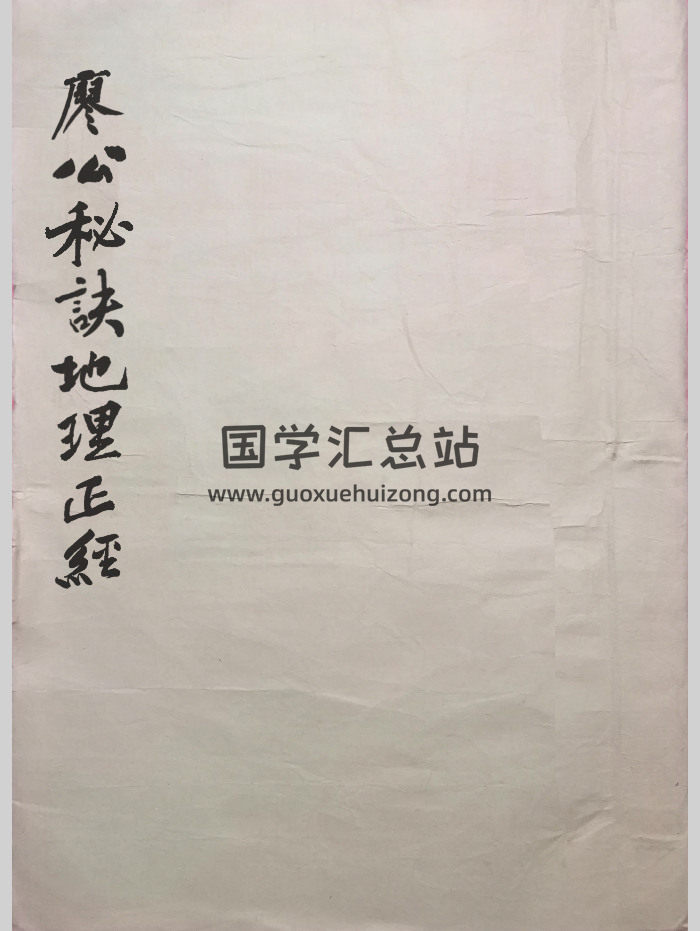 廖公秘訣地理正經
国学汇总站
www.guoxuehuizong.com